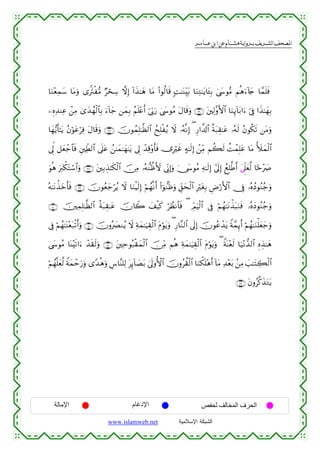 المصحف الشريف برواية هشام عن ابن عامر
فَلَمَّا جَآءَهُم مُّوسَىٰ بِـَٔايَٰتِنَا بَيِّنَٰتٍ قَالُوا۟ مَا هَٰذَآ إِلَّا سِحْرٌ مُّفْتَرًى وَمَا سَمِعْنَا
بِهَٰذَا فِىٓ ءَابَآئِنَا ٱلْأَوَّلِينَ ﴿٣٦﴾ وَقَالَ مُوسَىٰ رَبِّىٓ أَعْلَمُ بِمَن جَآءَ بِٱلْهُدَىٰ مِنْ عِندِهِۦ
وَمَن تَكُونُ لَهُۥ عَٰقِبَةُ ٱلدَّارِ إِنَّهُۥ لَا يُفْلِحُ ٱلظَّٰلِمُونَ ﴿٣٧﴾ وَقَالَ فِرْعَوْنُ يَٰٓأَيُّهَا
ٱلْمَلَأُ مَا عَلِمْتُ لَكُم مِّنْ إِلَٰهٍ غَيْرِى فَأَوْقِدْ لِى يَٰهَٰمَٰنُ عَلَى ٱلطِّينِ فَٱجْعَل لِّى
صَرْحًا لَّعَلِّىٓ أَطَّلِعُ إِلَىٰٓ إِلَٰهِ مُوسَىٰ وَإِنِّى لَأَظُنُّهُۥ مِنَ ٱلْكَٰذِبِينَ ﴿٣٨﴾ وَٱسْتَكْبَرَ هُوَ
وَجُنُودُهُۥ فِى ٱلْأَرْضِ بِغَيْرِ ٱلْحَقِّ وَظَنُّوٓا۟ أَنَّهُمْ إِلَيْنَا لَا يُرْجَعُونَ ﴿٣٩﴾ فَأَخَذْنَٰهُ
وَجُنُودَهُۥ فَنَبَذْنَٰهُمْ فِى ٱلْيَمِّ فَٱنظُرْ كَيْفَ كَانَ عَٰقِبَةُ ٱلظَّٰلِمِينَ ﴿٤٠﴾
وَجَعَلْنَٰهُمْ أَئِمَّةً يَدْعُونَ إِلَى ٱلنَّارِ وَيَوْمَ ٱلْقِيَٰمَةِ لَا يُنصَرُونَ ﴿٤١﴾ وَأَتْبَعْنَٰهُمْ فِى
هَٰذِهِ ٱلدُّنْيَا لَعْنَةً وَيَوْمَ ٱلْقِيَٰمَةِ هُم مِّنَ ٱلْمَقْبُوحِينَ ﴿٤٢﴾ وَلَقَدْ ءَاتَيْنَا مُوسَى
ٱلْكِتَٰبَ مِنۢ بَعْدِ مَآ أَهْلَكْنَا ٱلْقُرُونَ ٱلْأُولَىٰ بَصَآئِرَ لِلنَّاسِ وَهُدًى وَرَحْمَةً لَّعَلَّهُمْ
يَتَذَكَّرُونَ ﴿٤٣﴾
الحرف المخالف لحفص الإدغام الإمالة
الشبكة الإسلامية www.islamweb.net